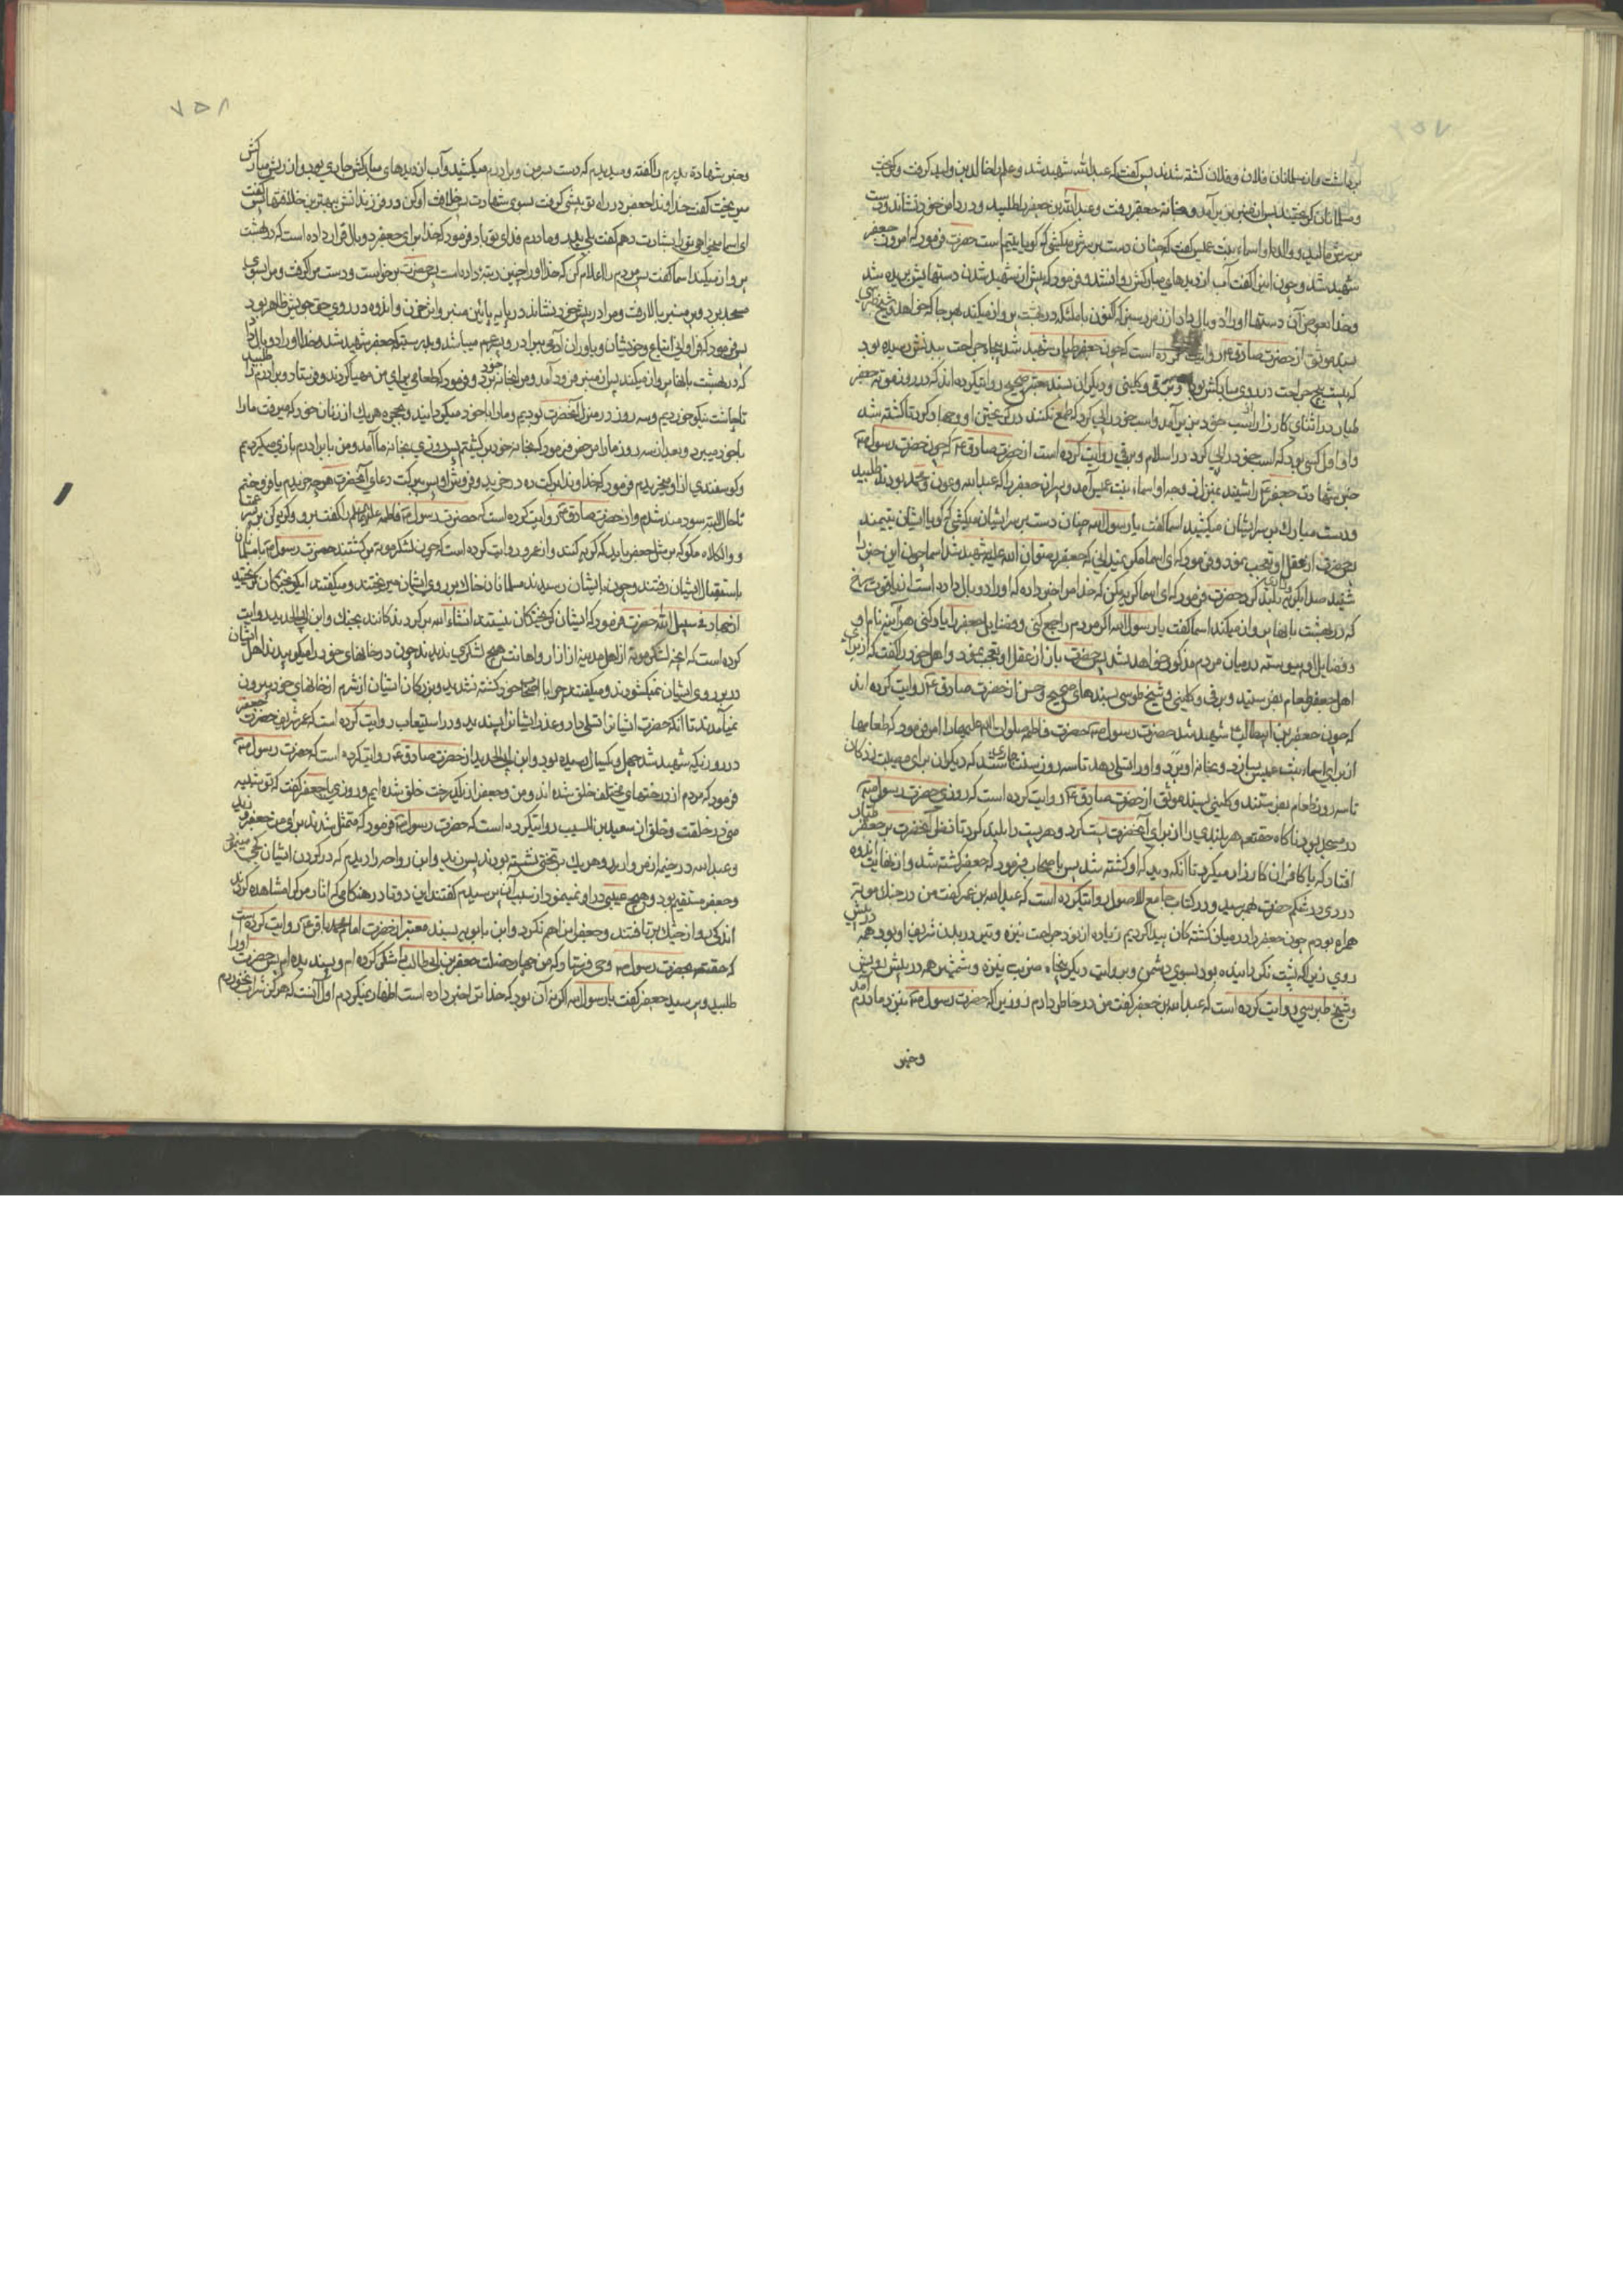 ۷۵۷
برداشت و از مسلمانان فلان و فلان کشته شدند پس گفت که عبدالله شهید شد و علم را خالد بن ولید گرفت و گریخت
و مسلمانان گریختند پس از منبر بزیر آمد و بخانه جعفر رفت و عبدالله بن جعفر را طلبید و در دامن خود نشاند و دست
بر سرش مالید و والده او اسماء بنت عمیس گفت که چنان دست بر سرش میکشی که گویا یتیم است حضرت فرمود که امروز جعفر
شهید شد و چون این را گفت آب از دیدهای مبارکش روان شد و فرمود که پیش از شهید شدن دستهایش بریده شد
و خدا بعوض آن دستها او را دو بال داد از زمرد سبز که اکنون با ملائکه در بهشت پرواز میکند بهر جا که خواهد و شیخ طبرسی
بسند موثق از حضرت صادق ع روایت کرده است که چون جعفر طیار شهید شد پنجاه جراحت ببدنش رسیده بود
که بیست و پنج جراحت در روی مبارکش بود و برقی و کلینی و دیگران بسند معتبر صحیح روایت کرده اند که در روز موته جعفر
طیار در اثنای کارزار از اسب خود بزیر آمد و اسب خود را پی کرد که طمع نکنند در گریختن او و جهاد کرد تا کشته شد
و او اول کسی بود که اسب خود را پی کرد در اسلام و برقی روایت کرده است از حضرت صادق ع که چون حضرت رسول ص
خبر شهادت جعفر را شنید بمنزل زوجه او اسماء بنت عمیس آمد و پسران جعفر را که عبدالله و عون و محمد بودند طلبید
و دست مبارک بر سر ایشان میکشید اسما گفت یا رسول الله چنان دست بر سر ایشان میکشی که گویا ایشان یتیمند
حضرت از عقل او تعجب نمود و فرمود که ای اسما مگر نمیدانی که جعفر رضوان الله علیه شهید شد اسما چون این خبر را
شنید صدا بگریه بلند کرد حضرت فرمود که ای اسما گریه مکن که خدا مرا خبر داده که او را دو بال داده است از یاقوت سرخ
که در بهشت با آنها پرواز میکند اسما گفت یا رسول الله اگر مردم را جمع کنی و فضایل جعفر را یاد کنی هر آینه نام او
و فضایل او پیوسته در میان مردم مذکور خواهد شد پس حضرت باز از عقل او تعجب نمود و اهل خود را گفت که از برای
اهل جعفر طعام بفرستید و برقی و کلینی و شیخ طوسی بسندهای صحیح و حسن از حضرت صادق ع روایت کرده اند
که چون جعفر بن ابیطالب شهید شد حضرت رسول ص حضرت فاطمه صلوات الله علیها را امر فرمود که طعامها
از برای اسماء بنت عمیس بسازد و بخانه او برد و او را تسلی دهد تا سه روز پس سنت جاری شد که دیگران برای مصیبت زدگان
تا سه روز طعام بفرستند و کلینی بسند موثق از حضرت صادق ع روایت کرده است که روزی حضرت رسول ص
در مسجد بود ناگاه حقتعالی هر بلندی را از برای آنحضرت پست کرد و هر پست را بلند کرد تا نظر آنحضرت بر جعفر طیار
افتاد که با کافران کارزار میکرد تا آنکه دید که او کشته شد پس باصحاب فرمود که جعفر کشته شد و از نهایت اندوه
دردی در شکم حضرت بهم رسید و در کتاب جامع الاصول روایت کرده است که عبدالله بن عمر گفت من در جنگ موته
همراه بودم چون جعفر را در میان کشتگان پیدا کردیم زیاده از نود جراحت نیزه و تیر در بدن شریف او بود همه در پیش
روی زیرا که پشت نگردانیده بود بسوی دشمن و بروایت دیگر پنجاه ضربت نیزه و شمشیر همه در پیش رویش
و شیخ طبرسی روایت کرده است که عبدالله بن جعفر گفت من در خاطر دارم روزی را که حضرت رسول ص بنزد مادرم آمد
و خبر
۷۵۸
و خبر شهادت پدرم را گفت و میدیدم که دست بر سر من و برادرم میکشید و آب از دیدهای مبارکش جاری بود و از ریش مبارکش
میریخت گفت خداوندا جعفر در راه تو پیشی گرفت بسوی شهادت پس خلافت او کن در فرزندانش بهترین خلافتها پس گفت
ای اسما میخواهی تو را بشارت دهم گفت بلی پدر و مادرم فدای تو باد فرمود که خدا برای جعفر دو بال قرار داده است که در بهشت
پرواز میکند اسما گفت پس مردم را اعلام کن که خدا او را چنین رتبه داده است پس حضرت برخاست و دست مرا گرفت و مرا بسوی
مسجد برد و بر منبر بالا رفت و مرا در پیش خود نشاند در پایه پائین منبر و اثر حزن و اندوه در روی حق جویش ظاهر بود
پس فرمود که
که در بهشت با آنها پرواز میکند پس از منبر فرود آمد و مرا بخانه خود برد و فرمود که طعامی برای من مهیا کردند و فرستاد و برادرم را طلبید
تا چاشت نیکو خوردیم و سه روز در منزل آنحضرت بودیم و ما را با خود میگردانید و بحجره هر یک از زنان خود که میرفت ما را
با خود میبرد و بعد از سه روز ما را مرخص فرمود که بخانه خود برگشتیم پس روزی بخانه ما آمد و من با برادرم بازی میکردیم
و گوسفندی از او میخریدیم فرمود که خداوندا برکت ده در خرید و فروش او پس ببرکت دعای آنحضرت هر چه خریدم یا فروختم
تا حال البته سودمند شدم و از حضرت صادق ع روایت کرده است که حضرت رسول ص فاطمه علیها السلام را گفت برو و گریه کن بر پسر عمت
و واثکلاه مگو که بر مثل جعفر باید که گریه کنند و از عروه روایت کرده است که چون لشکر موته برگشتند حضرت رسول ص با مسلمانان
باستقبال ایشان رفتند و چون بایشان رسیدند مسلمانان خاک بر روی ایشان میریختند و میگفتند ای گریختگان گریختید
از جهاد فی سبیل الله حضرت فرمود که ایشان گریختگان نیستند انشاء الله برگردندگانند بجنگ و ابن ابی الحدید روایت
کرده است که آنچه لشکر موته از اهل مدینه از آزار و اهانت هیچ لشکری ندیدند چون در خانهای خود را میکوبیدند اهل ایشان
در بر روی ایشان نمیگشودند و میگفتند چرا با اصحاب خود کشته نشدید و بزرگان ایشان از شرم از خانهای خود بیرون
نمیآمدند تا آنکه حضرت ایشان را تسلی داد و عذر ایشان را پسندید و در استیعاب روایت کرده است که عمر شریف حضرت جعفر
در روزی که شهید شد چهل و یکسال رسیده بود و ابن ابی الحدید از حضرت صادق ع روایت کرده است که حضرت رسول ص
فرمود که مردم از درختهای مختلف خلق شده اند و من و جعفر از یک درخت خلق شده ایم و روزی با جعفر گفت که تو شبیه
منی در خلقت و خلق و از سعید بن المسیب روایت کرده است که حضرت رسول ص فرمود که متمثل شدند برای من جعفر و زید
و عبدالله در خیمه از مروارید و هر یک بر تختی نشسته بودند پس زید و ابن رواحه را دیدم که در گردن ایشان کجی مینمود
و جعفر مستقیم بود و هیچ عیبی در او نمینمود از سبب آن پرسیدم گفتند این دو تا در هنگامی که آثار مرگ را مشاهده کردند
اندکی رو از جنگ برتافتند و جعفر چنین نکرد و ابن بابویه بسند معتبر از حضرت امام محمد باقر ع روایت کرده است
که حقتعالی بحضرت رسول ص وحی فرستاد که من چهار خصلت جعفر بن ابی طالب را شکر کرده ام و پسندیده ام پس حضرت او را
طلبید و پرسید جعفر گفت یا رسول الله اگر نه آن بود که خدا ترا خبر داده است اظهار نمیکردم اول آنست که هرگز شراب نخوردم